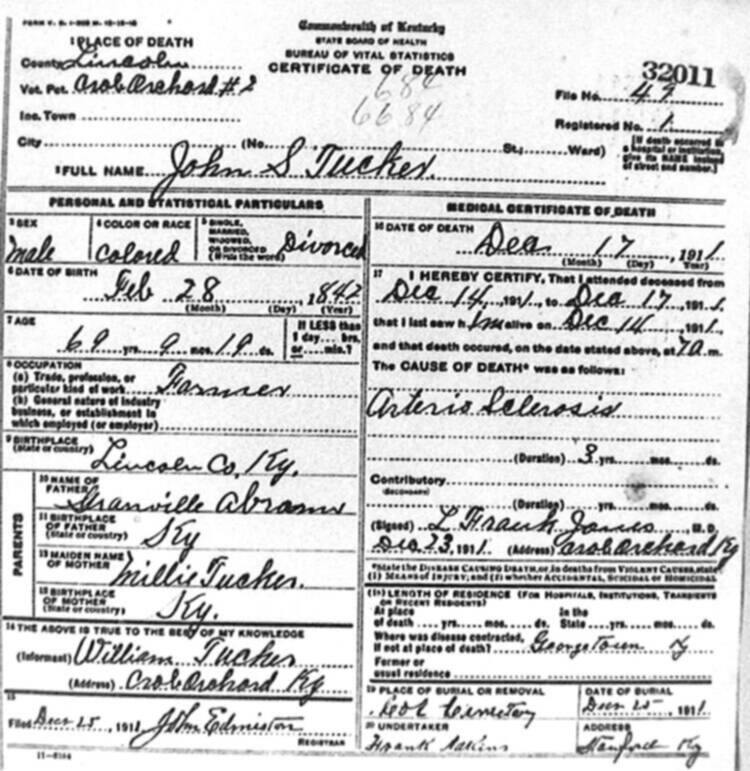 FORM V. S. 1-
Commonwealth of Kentucky
STATE BOARD OF HEALTH
BUREAU OF VITAL STATISTICS
CERTIFICATE OF DEATH
1 PLACE OF DEATH
County Lincoln
Vot. Pct. Crob Orchard #2
Inc. Town
City (No. St.; Ward)
684
6684
32011
File No. 49
Registered No. 1
[If death occurred in a hospital or institution, give its NAME instead of street and number.]
2 FULL NAME John S Tucker
PERSONAL AND STATISTICAL PARTICULARS
3 SEX
male
4 COLOR OR RACE
colored
5 SINGLE, MARRIED, WIDOWED, OR DIVORCED (Write the word)
Divorced
6 DATE OF BIRTH
Feb 28, 1842
(Month) (Day) (Year)
7 AGE
69 yrs. 9 mos. 19 ds.
If LESS than 1 day... hrs. or... min.?
8 OCCUPATION
(a) Trade, profession, or particular kind of work Farmer
(b) General nature of industry business, or establishment in which employed (or employer)
9 BIRTHPLACE (State or country)
Lincoln Co, Ky.
PARENTS
10 NAME OF FATHER Granville Abrams
11 BIRTHPLACE OF FATHER (State or country) Ky
12 MAIDEN NAME OF MOTHER Millie Tucker.
13 BIRTHPLACE OF MOTHER (State or country) Ky.
14 THE ABOVE IS TRUE TO THE BEST OF MY KNOWLEDGE
(Informant) William Tucker
(Address) Crob Orchard Ky
15
Filed Decr 25, 1911 John Edmiston
REGISTRAR
MEDICAL CERTIFICATE OF DEATH
16 DATE OF DEATH
Dec 17, 1911
(Month) (Day) (Year)
17 I HEREBY CERTIFY, That I attended deceased from
Dec 14, 1911 to Dec 17, 1911,
that I last saw him alive on Dec 14, 1911,
and that death occured, on the date stated above, at 7 a m.
The CAUSE OF DEATH* was as follows:
Arterio Sclerosis
(Duration) 3 yrs. mos. ds.
Contributory
(SECONDARY)
(Duration) yrs. mos. ds.
(Signed) L Frank Jones M.D.
Dec 23, 1911 (Address) Crob Orchard Ky
*State the DISEASE CAUSING DEATH, or, in deaths from VIOLENT CAUSES, state (1) MEANS OF INJURY; and (2) whether ACCIDENTAL, SUICIDAL or HOMICIDAL
18 LENGTH OF RESIDENCE (FOR HOSPITALS, INSTITUTIONS, TRANSIENTS OR RECENT RESIDENTS)
At place of death yrs. mos. ds. In the State yrs. mos. ds.
Where was disease contracted, If not at place of death? Georgetown Ky
Former or usual residence
19 PLACE OF BURIAL OR REMOVAL
Cemetery
DATE OF BURIAL
Decr 25, 1911
20 UNDERTAKER
Frank Adkins
ADDRESS
Stanford Ky
11-5184